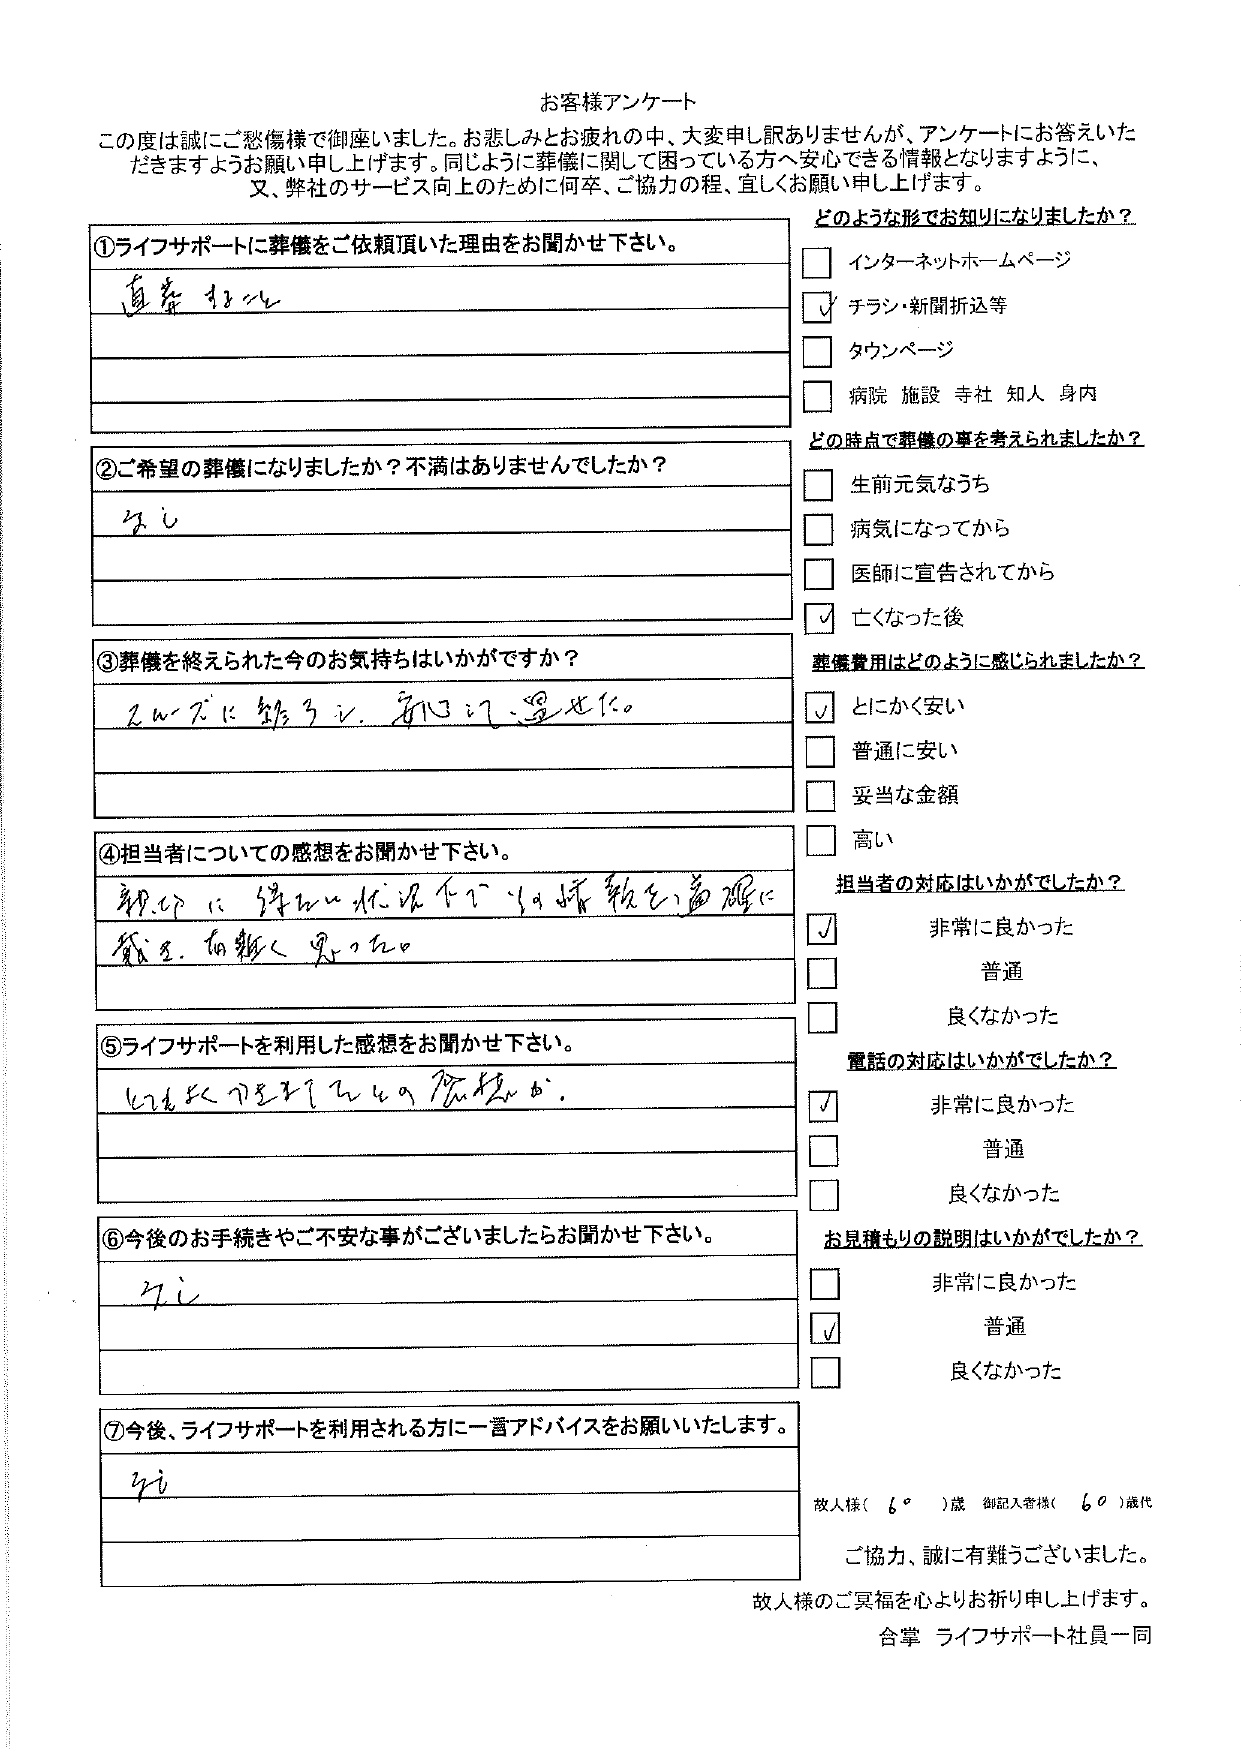 お客様アンケート
この度は誠にご愁傷様で御座いました。お悲しみとお疲れの中、大変申し訳ありませんが、アンケートにお答えいた
だきますようお願い申し上げます。同じように葬儀に関して困っている方へ安心できる情報となりますように、
又、弊社のサービス向上のために何卒、ご協力の程、宜しくお願い申し上げます。
①ライフサポートに葬儀をご依頼頂いた理由をお聞かせ下さい。
直葬
②ご希望の葬儀になりましたか？不満はありませんでしたか？
なし
③葬儀を終えられた今のお気持ちはいかがですか？
スムーズに
④担当者についての感想をお聞かせ下さい。
親切に 状況下で
有難く思った。
⑤ライフサポートを利用した感想をお聞かせ下さい。
とても良く
⑥今後のお手続きやご不安な事がございましたらお聞かせ下さい。
なし
⑦今後、ライフサポートを利用される方に一言アドバイスをお願いいたします。
なし
どのような形でお知りになりましたか？
インターネットホームページ
✓ チラシ・新聞折込等
タウンページ
病院 施設 寺社 知人 身内
どの時点で葬儀の事を考えられましたか？
生前元気なうち
病気になってから
医師に宣告されてから
✓ 亡くなった後
葬儀費用はどのように感じられましたか？
✓ とにかく安い
普通に安い
妥当な金額
高い
担当者の対応はいかがでしたか？
✓ 非常に良かった
普通
良くなかった
電話の対応はいかがでしたか？
✓ 非常に良かった
普通
良くなかった
お見積もりの説明はいかがでしたか？
非常に良かった
✓ 普通
良くなかった
故人様( 60 )歳 御記入者様( 60 )歳代
ご協力、誠に有難うございました。
故人様のご冥福を心よりお祈り申し上げます。
合掌 ライフサポート社員一同